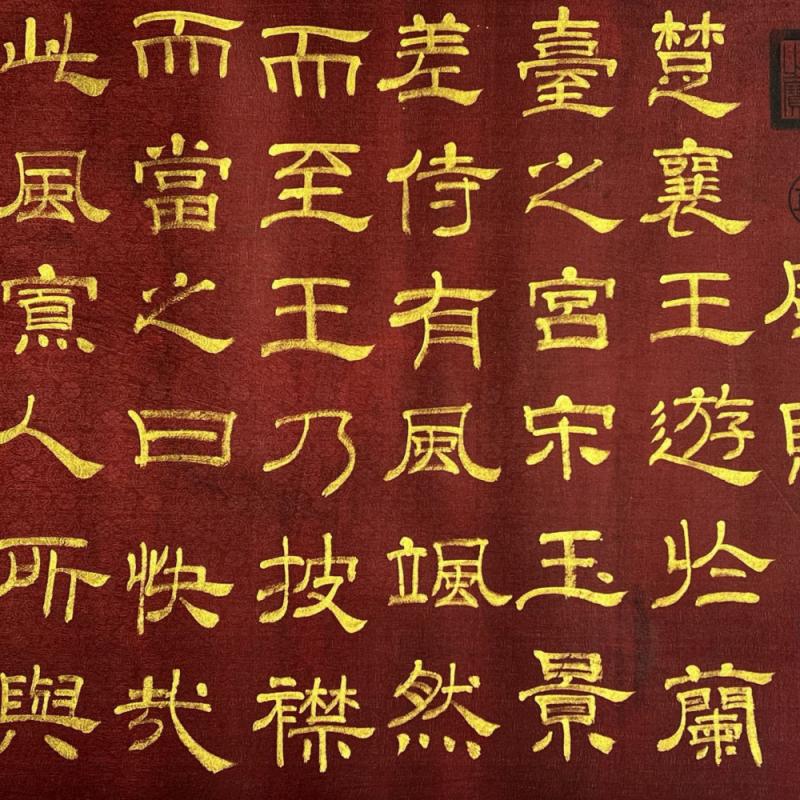 楚襄王遊於蘭
臺之宮宋玉景
差侍有風颯然
而至王乃披襟
而當之曰快哉
此風寡人所與